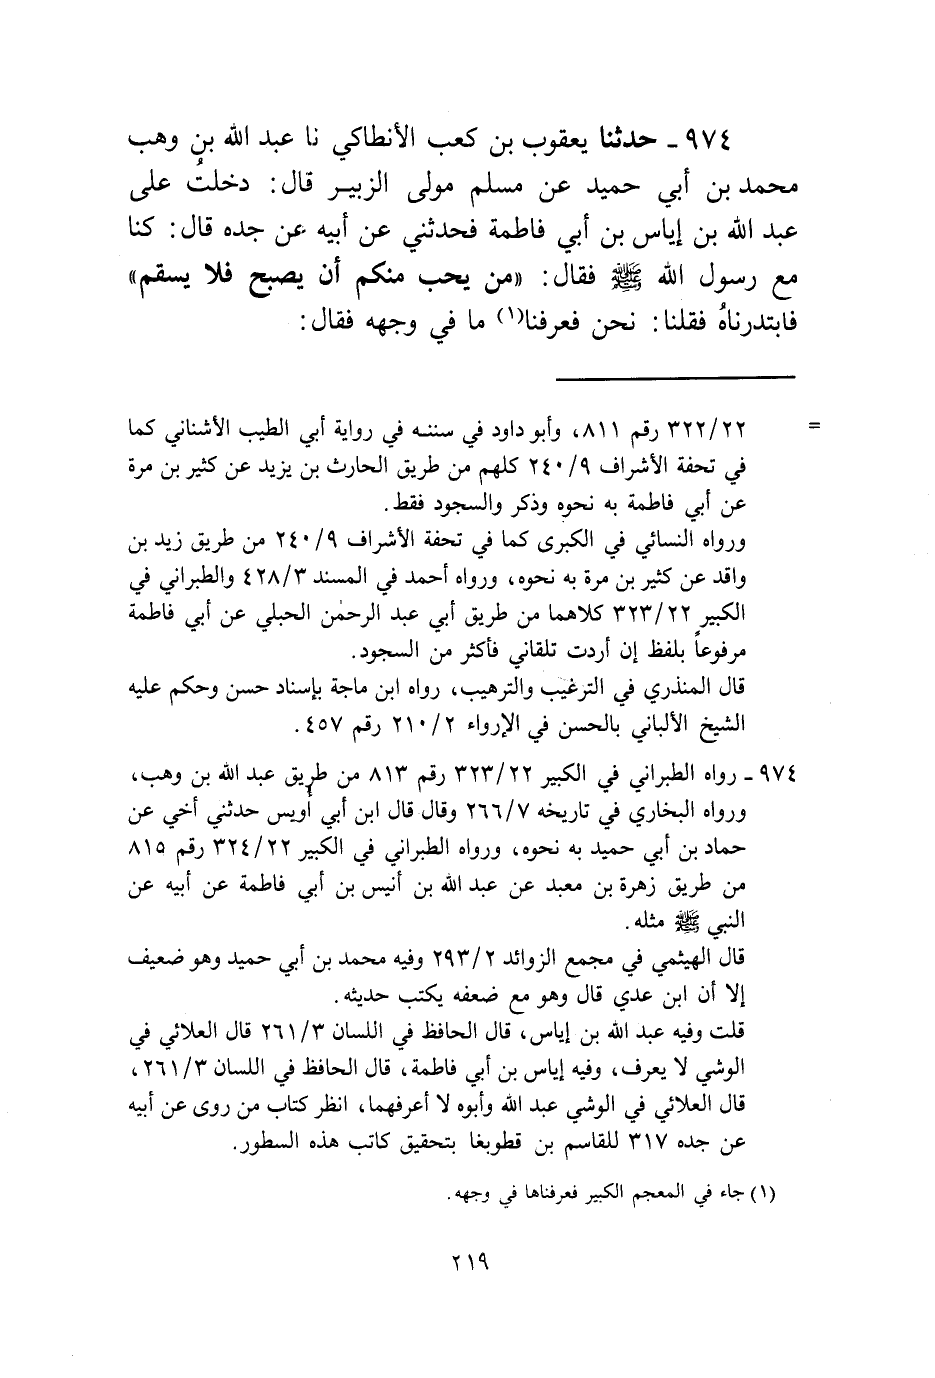 ٩٧٤ ـ حدثنا يعقوب بن كعب الأنطاكي نا عبد الله بن وهب
محمد بن أبي حميد عن مسلم مولى الزبيـر قال: دخلتُ على
عبد الله بن إياس بن أبي فاطمة فحدثني عن أبيه عن جده قال: كنا
مع رسول الله ﷺ فقال: «من يحب منكم أن يصبح فلا يسقم»
فابتدرناهُ فقلنا: نحن فعرفنا(١) ما في وجهه فقال:
= ٣٢٢/٢٢ رقم ٨١١، وأبو داود في سننه في رواية أبي الطيب الأشناني كما
في تحفة الأشراف ٢٤٠/٩ كلهم من طريق الحارث بن يزيد عن كثير بن مرة
عن أبي فاطمة به نحوه وذكر والسجود فقط.
ورواه النسائي في الكبرى كما في تحفة الأشراف ٢٤٠/٩ من طريق زيد بن
واقد عن كثير بن مرة به نحوه، ورواه أحمد في المسند ٤٢٨/٣ والطبراني في
الكبير ٣٢٣/٢٢ كلاهما من طريق أبي عبد الرحمٰن الحبلي عن أبي فاطمة
مرفوعاً بلفظ إن أردت تلقاني فأكثر من السجود.
قال المنذري في الترغيب والترهيب، رواه ابن ماجة بإسناد حسن وحكم عليه
الشيخ الألباني بالحسن في الإرواء ٢١٠/٢ رقم ٤٥٧.
٩٧٤ ـ رواه الطبراني في الكبير ٣٢٣/٢٢ رقم ٨١٣ من طريق عبد الله بن وهب،
ورواه البخاري في تاريخه ٢٦٦/٧ وقال قال ابن أبي أويس حدثني أخي عن
حماد بن أبي حميد به نحوه، ورواه الطبراني في الكبير ٣٢٤/٢٢ رقم ٨١٥
من طريق زهرة بن معبد عن عبد الله بن أنيس بن أبي فاطمة عن أبيه عن
النبي ﷺ مثله.
قال الهيثمي في مجمع الزوائد ٢٩٣/٢ وفيه محمد بن أبي حميد وهو ضعيف
إلا أن ابن عدي قال وهو مع ضعفه يكتب حديثه.
قلت وفيه عبد الله بن إياس، قال الحافظ في اللسان ٢٦١/٣ قال العلائي في
الوشي لا يعرف، وفيه إياس بن أبي فاطمة، قال الحافظ في اللسان ٢٦١/٣،
قال العلائي في الوشي عبد الله وأبوه لا أعرفهما، انظر كتاب من روى عن أبيه
عن جده ٣١٧ للقاسم بن قطوبغا بتحقيق كاتب هذه السطور.
(١) جاء في المعجم الكبير فعرفناها في وجهه.
٢١٩